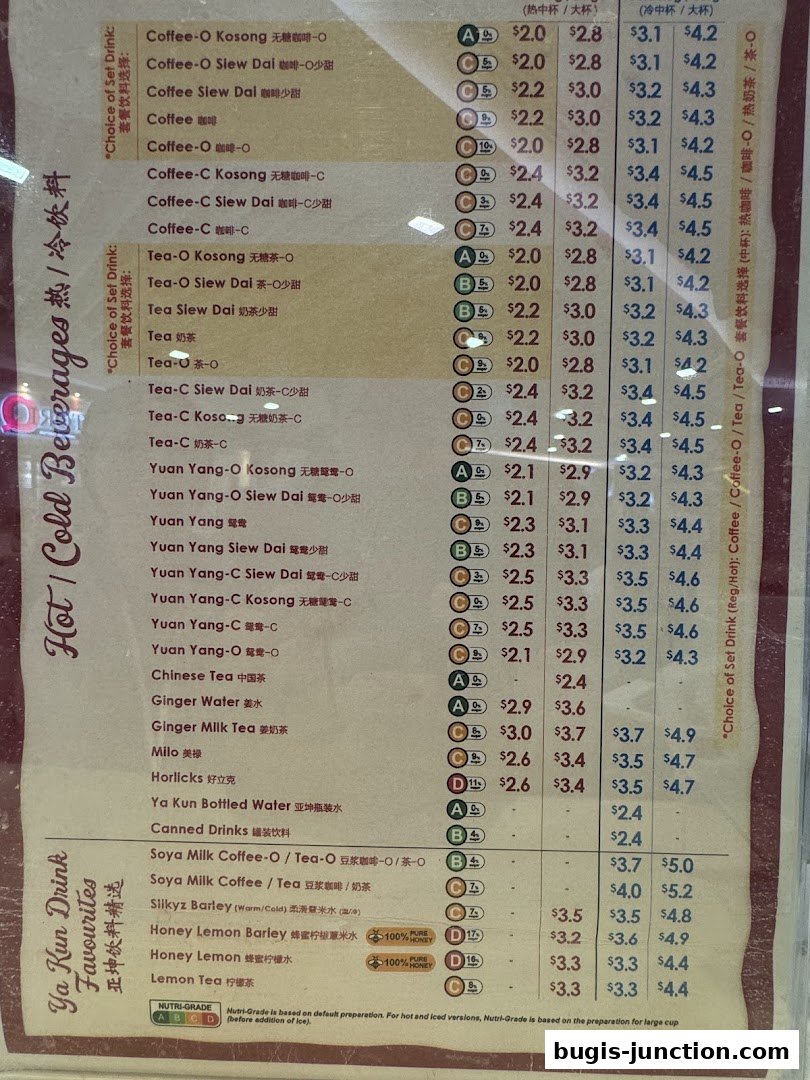 (热中杯 / 大杯) (冷中杯 / 大杯)
*Choice of Set Drink:
套餐饮料选择:
Hot / Cold Beverages 热 / 冷饮料
Coffee-O Kosong 无糖咖啡-O A 0% $2.0 $2.8 $3.1 $4.2
Coffee-O Siew Dai 咖啡-O少甜 C 5% $2.0 $2.8 $3.1 $4.2
Coffee Siew Dai 咖啡少甜 C 5% $2.2 $3.0 $3.2 $4.3
Coffee 咖啡 C 9% $2.2 $3.0 $3.2 $4.3
Coffee-O 咖啡-O C 10% $2.0 $2.8 $3.1 $4.2
Coffee-C Kosong 无糖咖啡-C C 0% $2.4 $3.2 $3.4 $4.5
Coffee-C Siew Dai 咖啡-C少甜 C 3% $2.4 $3.2 $3.4 $4.5
Coffee-C 咖啡-C C 7% $2.4 $3.2 $3.4 $4.5
*Choice of Set Drink:
套餐饮料选择:
Tea-O Kosong 无糖茶-O A 0% $2.0 $2.8 $3.1 $4.2
Tea-O Siew Dai 茶-O少甜 B 5% $2.0 $2.8 $3.1 $4.2
Tea Siew Dai 奶茶少甜 B 5% $2.2 $3.0 $3.2 $4.3
Tea 奶茶 C 9% $2.2 $3.0 $3.2 $4.3
Tea-O 茶-O C 9% $2.0 $2.8 $3.1 $4.2
Tea-C Siew Dai 奶茶-C少甜 C 2% $2.4 $3.2 $3.4 $4.5
Tea-C Kosong 无糖奶茶-C C 0% $2.4 $3.2 $3.4 $4.5
Tea-C 奶茶-C C 7% $2.4 $3.2 $3.4 $4.5
Yuan Yang-O Kosong 无糖鸳鸯-O A 0% $2.1 $2.9 $3.2 $4.3
Yuan Yang-O Siew Dai 鸳鸯-O少甜 B 5% $2.1 $2.9 $3.2 $4.3
Yuan Yang 鸳鸯 C 9% $2.3 $3.1 $3.3 $4.4
Yuan Yang Siew Dai 鸳鸯少甜 B 5% $2.3 $3.1 $3.3 $4.4
Yuan Yang-C Siew Dai 鸳鸯-C少甜 C 3% $2.5 $3.3 $3.5 $4.6
Yuan Yang-C Kosong 无糖鸳鸯-C C 0% $2.5 $3.3 $3.5 $4.6
Yuan Yang-C 鸳鸯-C C 7% $2.5 $3.3 $3.5 $4.6
Yuan Yang-O 鸳鸯-O C 9% $2.1 $2.9 $3.2 $4.3
Chinese Tea 中国茶 A 0% - $2.4 - -
Ginger Water 姜水 A 0% $2.9 $3.6 - -
Ginger Milk Tea 姜奶茶 C 8% $3.0 $3.7 $3.7 $4.9
Milo 美禄 C 9% $2.6 $3.4 $3.5 $4.7
Horlicks 好立克 D 11% $2.6 $3.4 $3.5 $4.7
Ya Kun Bottled Water 亚坤瓶装水 A 0% - - $2.4 -
Canned Drinks 罐装饮料 B 4% - - $2.4 -
*Choice of Set Drink (Reg/Hot): Coffee / Coffee-O / Tea / Tea-O 套餐饮料选择 (中杯): 热咖啡 / 咖啡-O / 热奶茶 / 茶-O
Ya Kun Drink
Favourites
亚坤饮料精选
Soya Milk Coffee-O / Tea-O 豆浆咖啡-O / 茶-O B 4% - - $3.7 $5.0
Soya Milk Coffee / Tea 豆浆咖啡 / 奶茶 C 7% - - $4.0 $5.2
Silkyz Barley (Warm/Cold) 柔滑薏米水 (温/冷) C 7% - $3.5 $3.5 $4.8
Honey Lemon Barley 蜂蜜柠檬薏米水 100% PURE HONEY D 17% - $3.2 $3.6 $4.9
Honey Lemon 蜂蜜柠檬水 100% PURE HONEY D 16% - $3.3 $3.3 $4.4
Lemon Tea 柠檬茶 C 8% - $3.3 $3.3 $4.4
NUTRI-GRADE
A B C D
Nutri-Grade is based on default preparation. For hot and iced versions, Nutri-Grade is based on the preparation for large cup
(before addition of ice).
bugis-junction.com